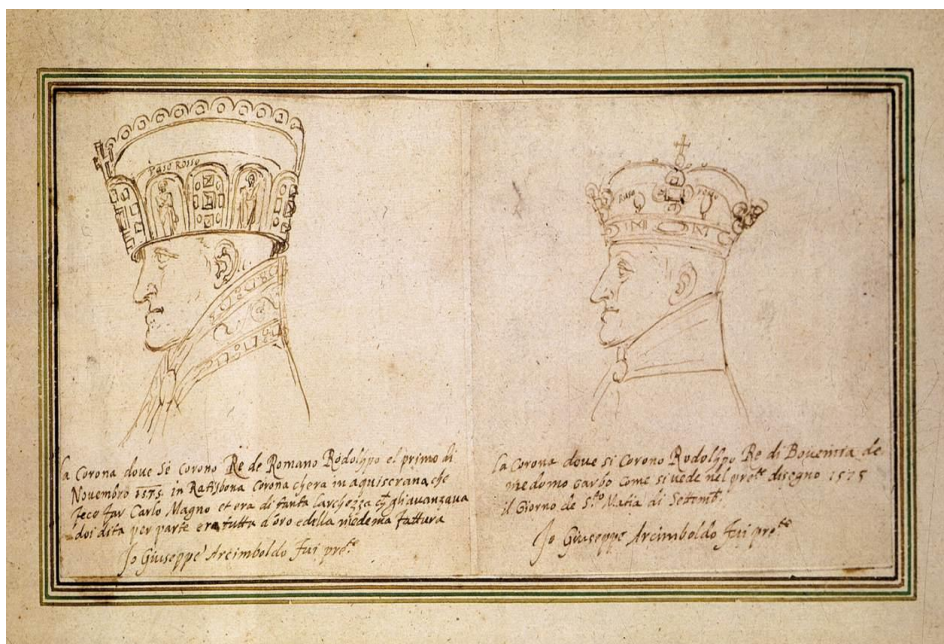 Raso Rosso
la corona dove Se Corono Re de Romano Rodolfo el primo di
Novembro 1575. in Ratisbona corona chera in aquiserana che
fece far Carlo Magno et era di tanta Larghezza che ghi avanzava
doi dita per parte era tutta d'oro e della medema fattura
Jo Giuseppe Arcimboldo fui pro.te
la corona dove si Corono Rodolfo Re di Bouemia de
medemo garbo come si vede nel pro.te disegno 1575
il Giorno de S.to Matia di Settemb.
Jo Giuseppe Arcimboldo fui pre.te